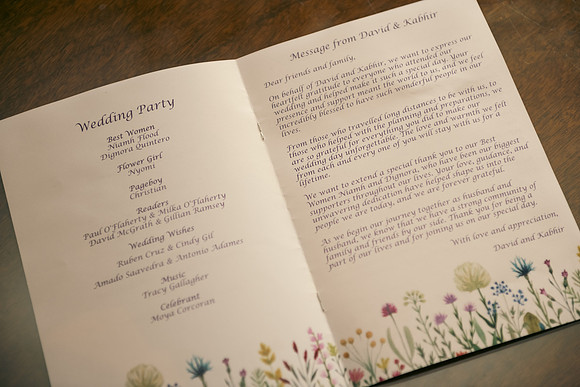 Wedding Party
Best Women
Niamh Flood
Dignora Quintero
Flower Girl
Nyomi
Pageboy
Christian
Readers
Paul O'Flaherty & Milka O'Flaherty
David McGrath & Gillian Ramsey
Wedding Wishes
Ruben Cruz & Cindy Gil
Amado Saavedra & Antonio Adames
Music
Tracy Gallagher
Celebrant
Moya Corcoran
Message from David & Kabhir
Dear friends and family,
On behalf of David and Kabhir, we want to express our
heartfelt gratitude to everyone who attended our
wedding and helped make it such a special day. Your
presence and support meant the world to us, and we feel
incredibly blessed to have such wonderful people in our
lives.
From those who travelled long distances to be with us, to
those who helped with the planning and preparations, we
are so grateful for everything you did to make our
wedding day unforgettable. The love and warmth we felt
from each and every one of you will stay with us for a
lifetime.
We want to extend a special thank you to our Best
Women Niamh and Dignora, who have been our biggest
supporters throughout our lives. Your love, guidance, and
unwavering dedication have helped shape us into the
people we are today, and we are forever grateful.
As we begin our journey together as husband and
husband, we know that we have a strong community of
family and friends by our side. Thank you for being a
part of our lives and for joining us on our special day.
With love and appreciation,
David and Kabhir